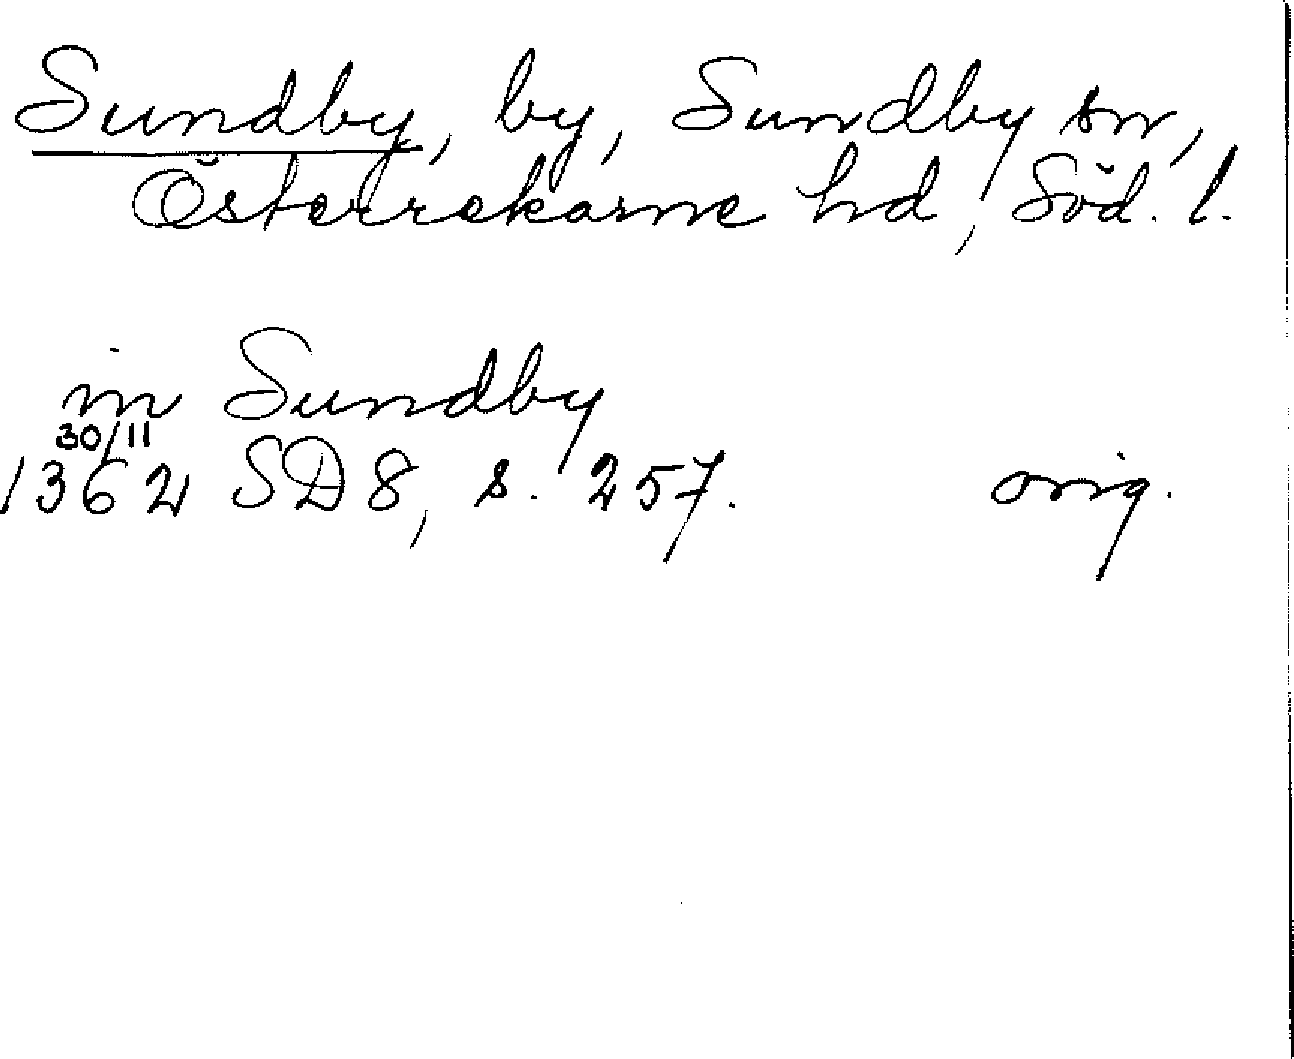 Sundby, by, Sundby sn,
Österrekarne hd, Söd. l.
in Sundby
30/11
1362 SD 8, s. 257. orig.